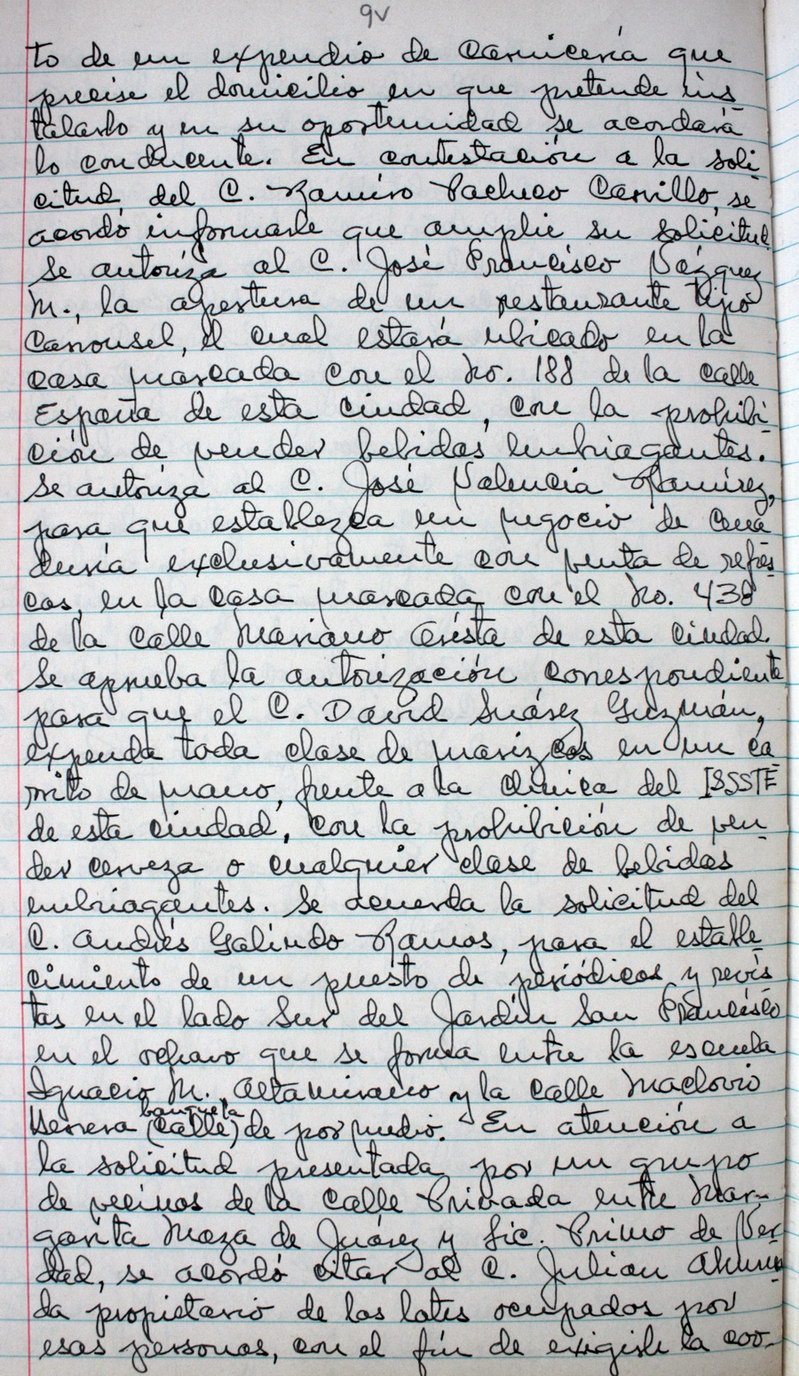 9v
to de un expendio de carnicería que
precise el domicilio en que pretende ins_
talarlo y en su oportunidad se acordará
lo conducente. En contestación a la soli_
citud del C. Ramiro Pacheco Carrillo, se
acordó informarle que amplie su solicitud
Se autoriza al C. José Francisco Vázquez
M., la apertura de un restaurante tipo
Carrousel, el cual estará ubicado en la
casa marcada con el No. 188 de la calle
España de esta ciudad, con la prohibi_
ción de vender bebidas embriagantes.
Se autoriza al C. José Valencia Ramírez,
para que establezca un negocio de cena
duría exclusivamente con venta de refres
cos, en la casa marcada con el No. 438
de la calle Mariano Arista de esta ciudad.
Se aprueba la autorización correspondiente
para que el C. David Suárez Guzmán,
expenda toda clase de mariscos en un ca
rrito de mano, frente a la clínica del ISSSTE
de esta ciudad, con la prohibición de ven
der cerveza o cualquier clase de bebidas
embriagantes. Se acuerda la solicitud del
C. Andrés Galindo Ramos, para el estable_
cimiento de un puesto de periódicos y revis
tas en el lado Sur del Jardín San Francisco
en el ochavo que se forma entre la escuela
Ignacio M. Altamirano y la calle Maclovio
banqueta
Herrera (calle) de por medio. En atención a
la solicitud presentada por un grupo
de vecinos de la calle Privada entre Mar_
garita Maza de Juárez y Lic. Primo de Ver_
dad, se acordó citar al C. Julian Ahuma_
da propietario de los lotes ocupados por
esas personas, con el fin de exigirle la coo_